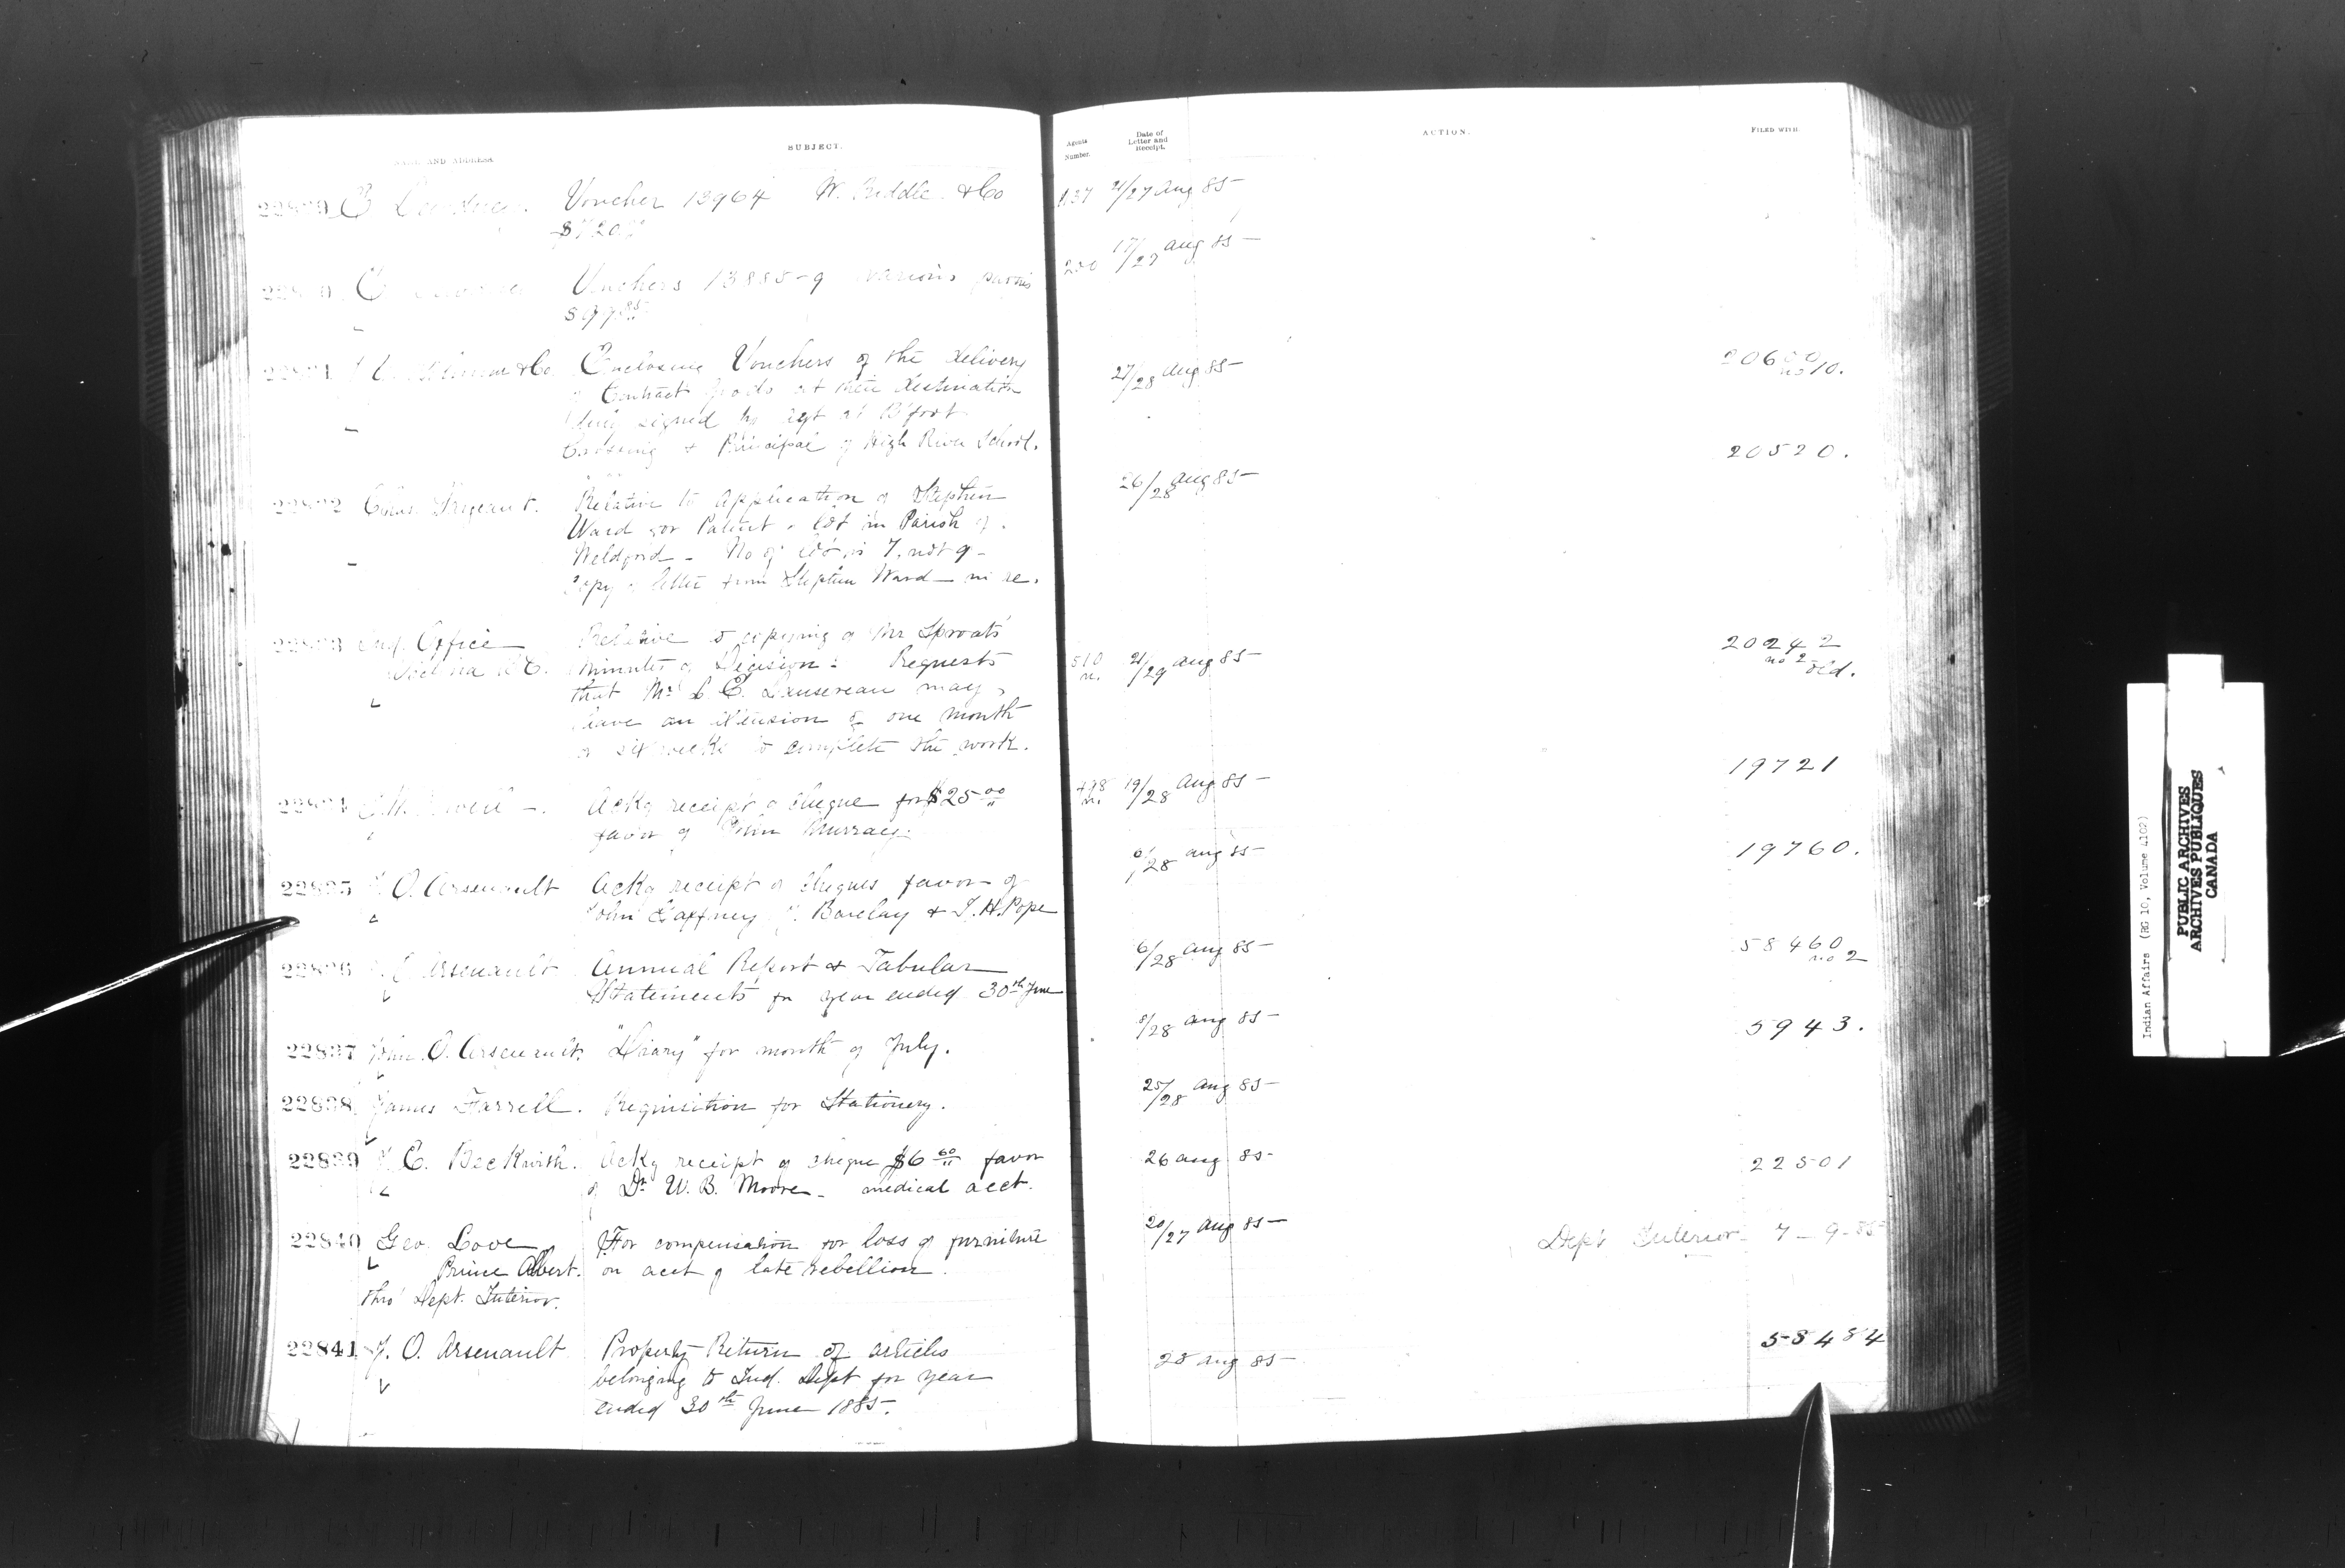 NAME AND ADDRESS.
SUBJECT.
Agents Number.
Date of Letter and Receipt.
ACTION.
FILED WITH
E Voucher 13964 W. & Co
137 21/27 Aug 85
Vouchers 13885-9 various
17/27 Aug 85
& Co Enclosing Vouchers of the delivery
27/28 Aug 85
of Contract goods at their destination
signed by agt at B'foot
Crossing & Principal of High River School.
no 10.
20520.
22832 Chas Sargeant. Relative to application of Stephen
26/28 Aug 85
Ward for Patent lot in Parish of
Weldford - No of lot is 7, not 9 -
Copy of letter from Stephen Ward - in re.
22833 Ind. Office Relative to copying of Mr Sproats'
Victoria B C. Minutes of Decision: Requests
510 21/29 Aug 85
20242
no 2 old.
that Mr C. E. Dansereau may
have an extension of one month
or six weeks to complete the work.
19721
22834 Ackg receipt of cheque for $25.00
498 19/28 Aug 85
favor of John Murray.
19760.
22835 J. O. Arsenault Ackg receipt of cheques favor of
/28 Aug 85
John Gaffney, J. Barclay & J. H. Pope
22836 J. O. Arsenault Annual Report & Tabular
6/28 Aug 85
58460
no 2
Statements for year ended 30th June
22837 John O. Arsenault. "Diary" for month of July.
8/28 Aug 85
5943.
22838 James Farrell. Requisition for Stationery.
25/28 Aug 85
22839 J. E. Beckwith. Ackg receipt of cheque $6.60 favor
26 Aug 85
22501
of Dr W. B. Moore - medical acct.
22840 Geo. Love For compensation for loss of furniture
20/27 Aug 85
Dept Interior 7-9-85
Prince Albert. on acct of late rebellion.
thro' Dept. Interior.
22841 J. O. Arsenault Property Return of articles
28 Aug 85
58484
belonging to Ind. Dept for year
ended 30th June 1885.
Indian Affairs (RG 10, Volume 4102)
PUBLIC ARCHIVES
ARCHIVES PUBLIQUES
CANADA